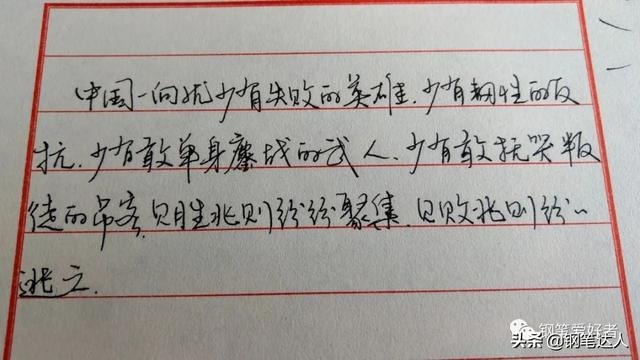 中国一向就少有失败的英雄.少有韧性的反
抗.少有敢单身鏖战的武人.少有敢抚哭叛
徒的吊客,见胜兆则纷纷聚集.见败兆则纷〃
逃亡.
钢笔爱好者
头条@钢笔达人